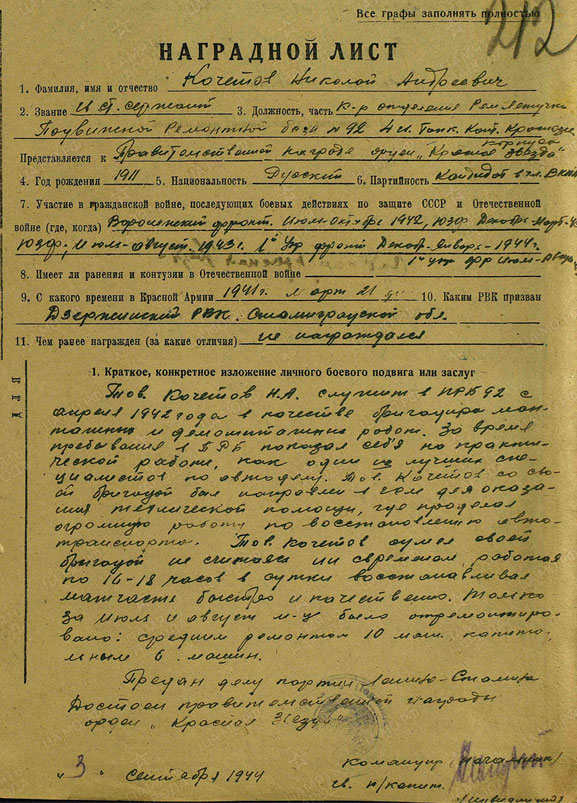 Все графы заполнять полностью
212
НАГРАДНОЙ ЛИСТ
1. Фамилия, имя и отчество Кочетов Николай Андреевич
2. Звание и ст. сержант 3. Должность, часть к-р отделения Ремлетучки
Подвижной Ремонтной базы № 92 4 гв. Танк. Кант. Краснозн.
корпуса
Представляется к Правительственной награде орден "Красная звезда"
4. Год рождения 1911 5. Национальность Русский 6. Партийность Кандидат в чл. ВКП
7. Участие в гражданской войне, последующих боевых действиях по защите СССР и Отечественной
войне (где, когда) Воронежский фронт. Июль-Октябрь 1942, ЮЗФ Декабрь-Март-
ЮЗФ, Июль-август 1943 г. 1й Укр фронт Декабрь-Январь-1944 г.
1й Укр фр Июль-
8. Имеет ли ранения и контузии в Отечественной войне
9. С какого времени в Красной Армии 1941 г. Март 21 дня 10. Каким РВК призван
Дзержинский РВК. Сталинградской обл.
11. Чем ранее награжден (за какие отличия) не награждался
1. Краткое, конкретное изложение личного боевого подвига или заслуг
Тов. Кочетов Н.А. служит в ПРБ 92 с
апреля 1942 года в качестве бригадира мон-
тажных и демонтажных работ. За время
пребывания в ПРБ показал себя на практи-
ческой работе, как один из лучших спе-
циалистов по автоделу. Тов. Кочетов со сво-
ей бригадой был направлен в для оказа-
ния технической помощи, где проделал
огромную работу по восстановлению авто-
транспорта. Тов. Кочетов сумел своей
бригадой не считаясь ни временем работая
по 16-18 часов в сутки восстанавливал
матчасть быстро и качественно. Только
за июль и август м-ц было отремонтиро-
вано: средним ремонтом 10 маш. капита-
льным 6 машин.
Предан делу партии Ленина-Сталина
Достоин правительственной награды
орден "Красная Звезда"
Командир (начальник)
"3" сентября 1944 гв. т/капит.